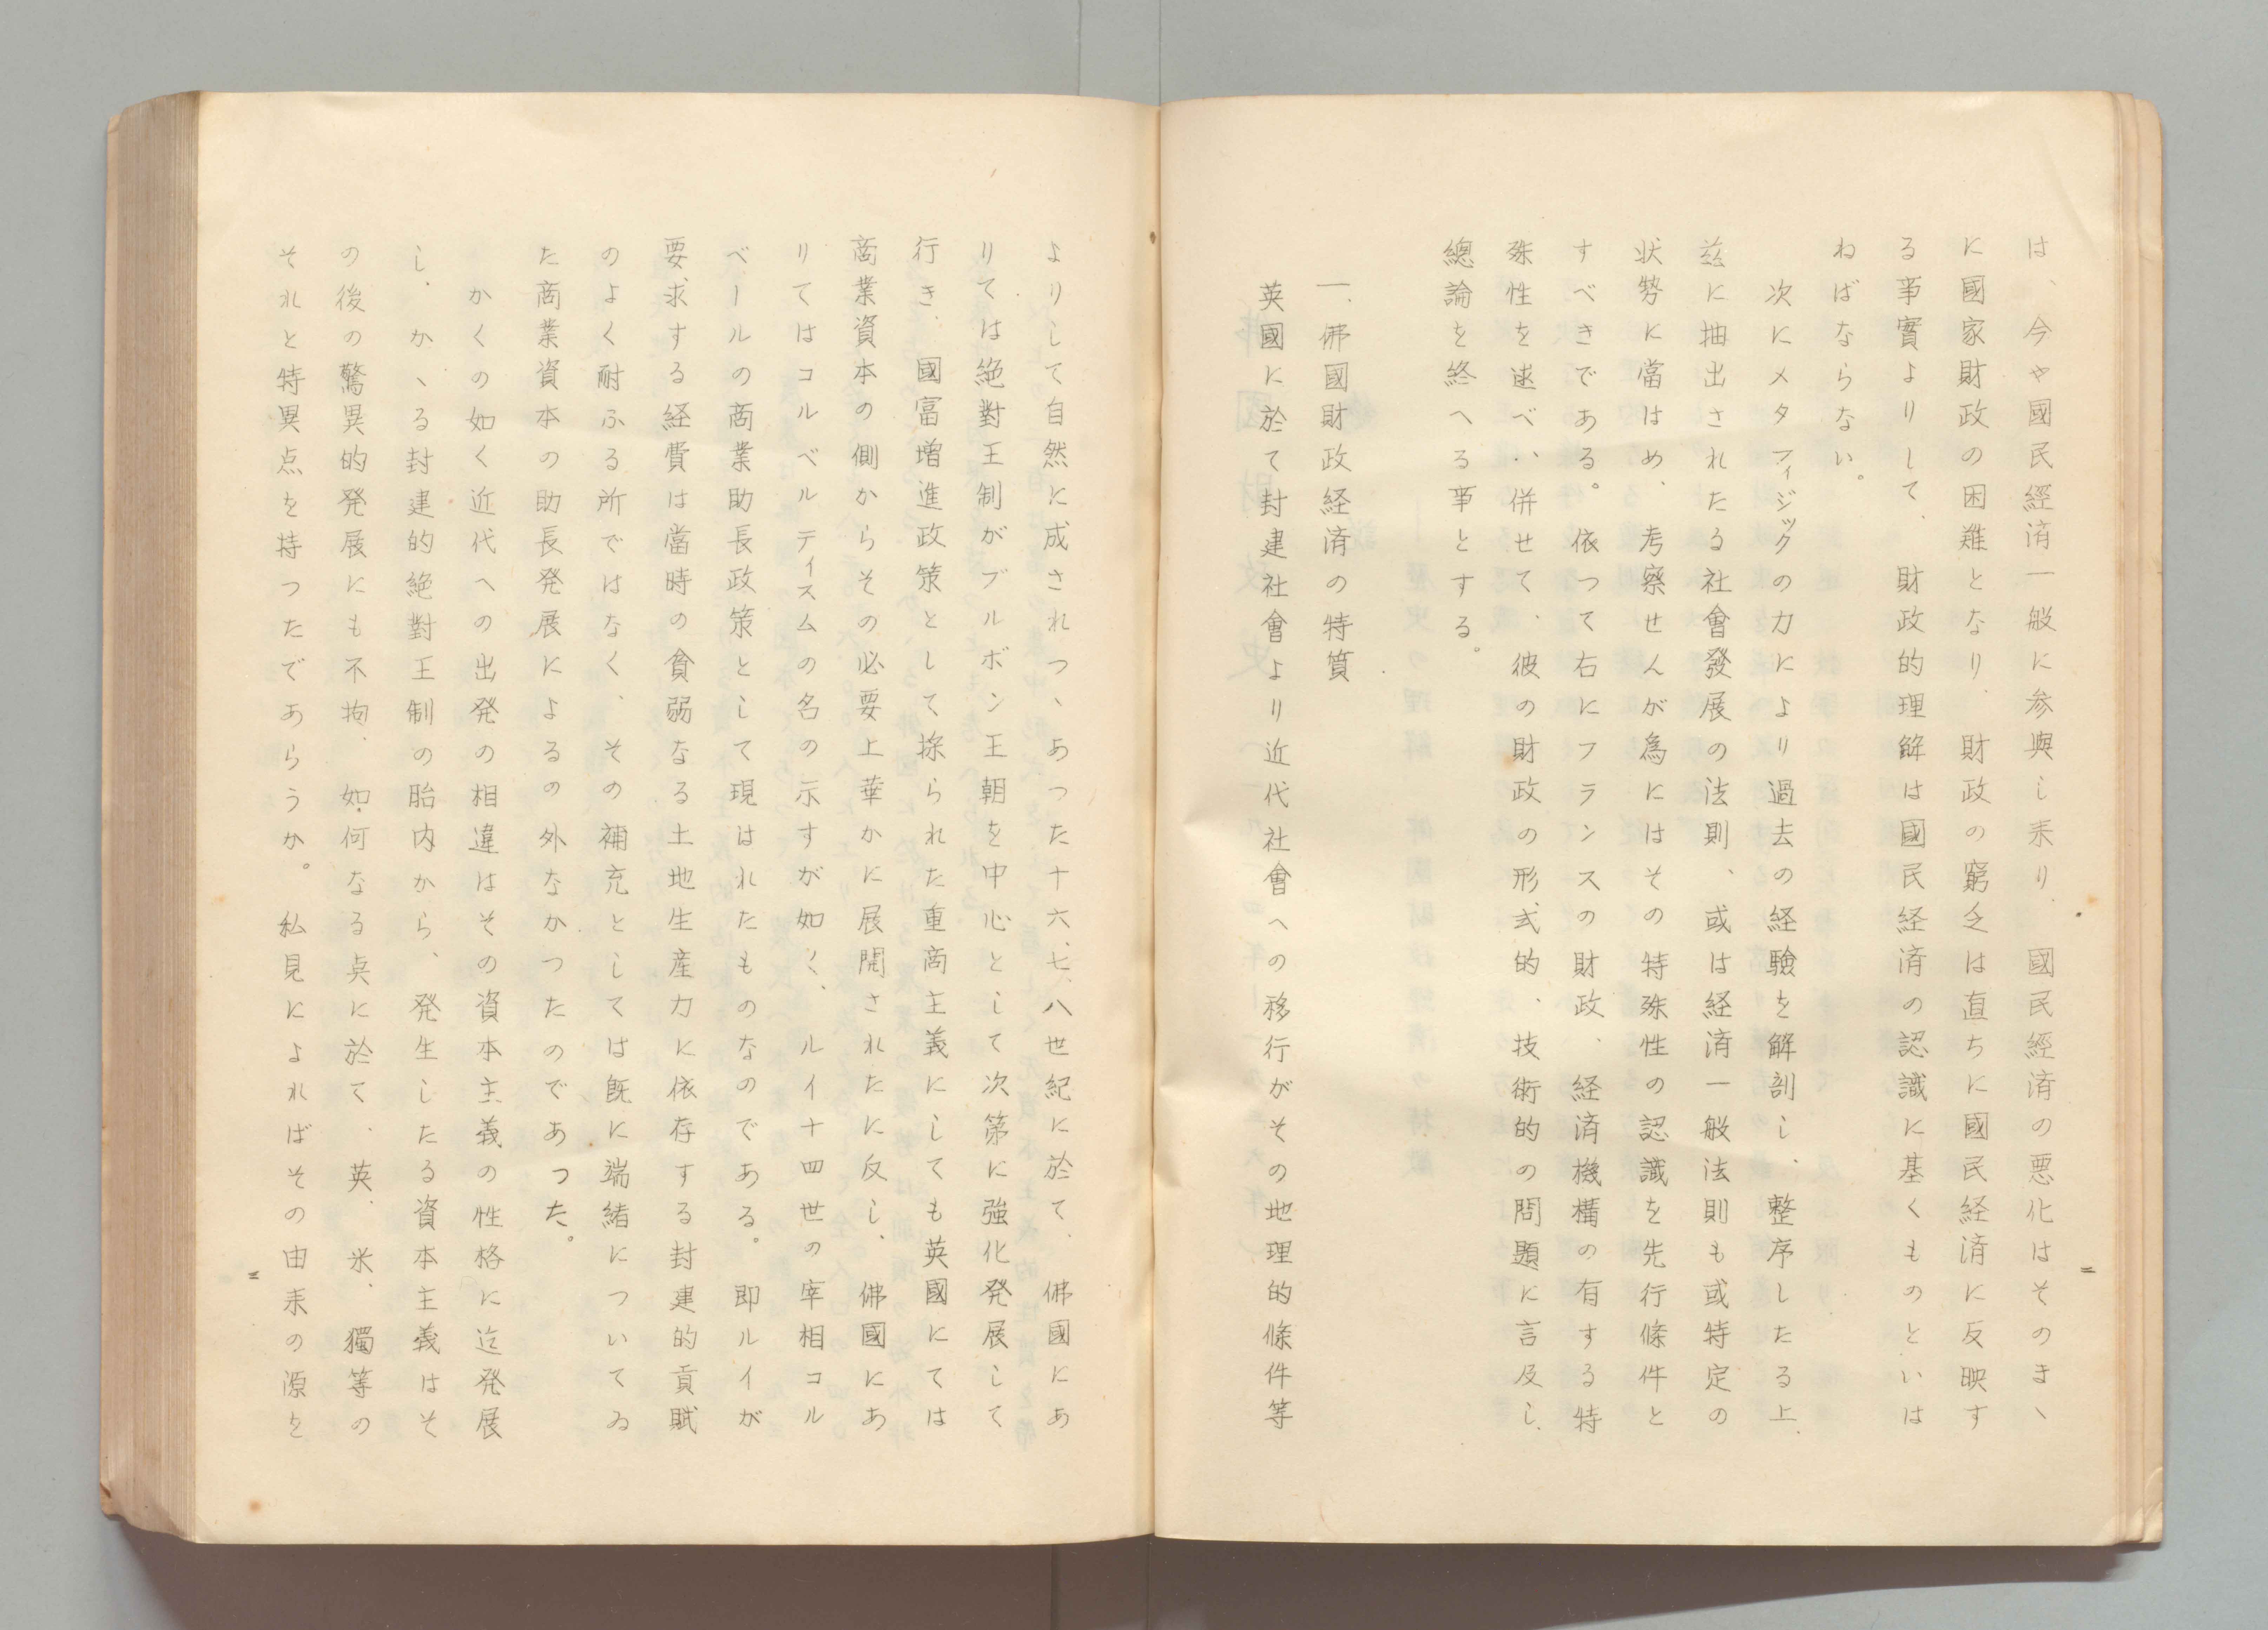 は、今や國民經済一般に参與し来り、國民經済の悪化はそのまゝ
に國家財政の困難となり、財政の窮乏は直ちに國民経済に反映す
る事實よりして、財政的理解は國民経済の認識に基くものといは
ねばならない。
次にメタフィジックの力により過去の経驗を解剖し、整序したる上、
茲に抽出されたる社會發展の法則、或は経済一般法則も或特定の
状勢に當はめ、考察せんが為にはその特殊性の認識を先行條件と
すべきである。依つて右にフランスの財政、経済機構の有する特
殊性を述べ、併せて、彼の財政の形式的、技術的の問題に言及し、
總論を終へる事とする。
一、佛國財政経済の特質
英國に於て封建社會より近代社會への移行がその地理的條件等
よりして自然に成されつゝあつた十六、七、八世紀に於て、佛國にあ
りては絶對王制がブルボン王朝を中心として次第に強化発展して
行き、國富増進政策として採られた重商主義にしても英國にては
商業資本の側からその必要上華かに展開されたに反し、佛國にあ
りてはコルベルティスムの名の示すが如く、ルイ十四世の宰相コル
ベールの商業助長政策として現はれたものなのである。即ルイが
要求する経費は當時の貧弱なる土地生産力に依存する封建的貢賦
のよく耐ふる所ではなく、その補充としては既に端緒についてゐ
た商業資本の助長発展によるの外なかつたのであつた。
かくの如く近代への出発の相違はその資本主義の性格に迄発展
し、かゝる封建的絶對王制の胎内から、発生したる資本主義はそ
の後の驚異的発展にも不拘、如何なる点に於て、英、米、獨等の
それと特異点を持つたであらうか。私見によればその由来の源を